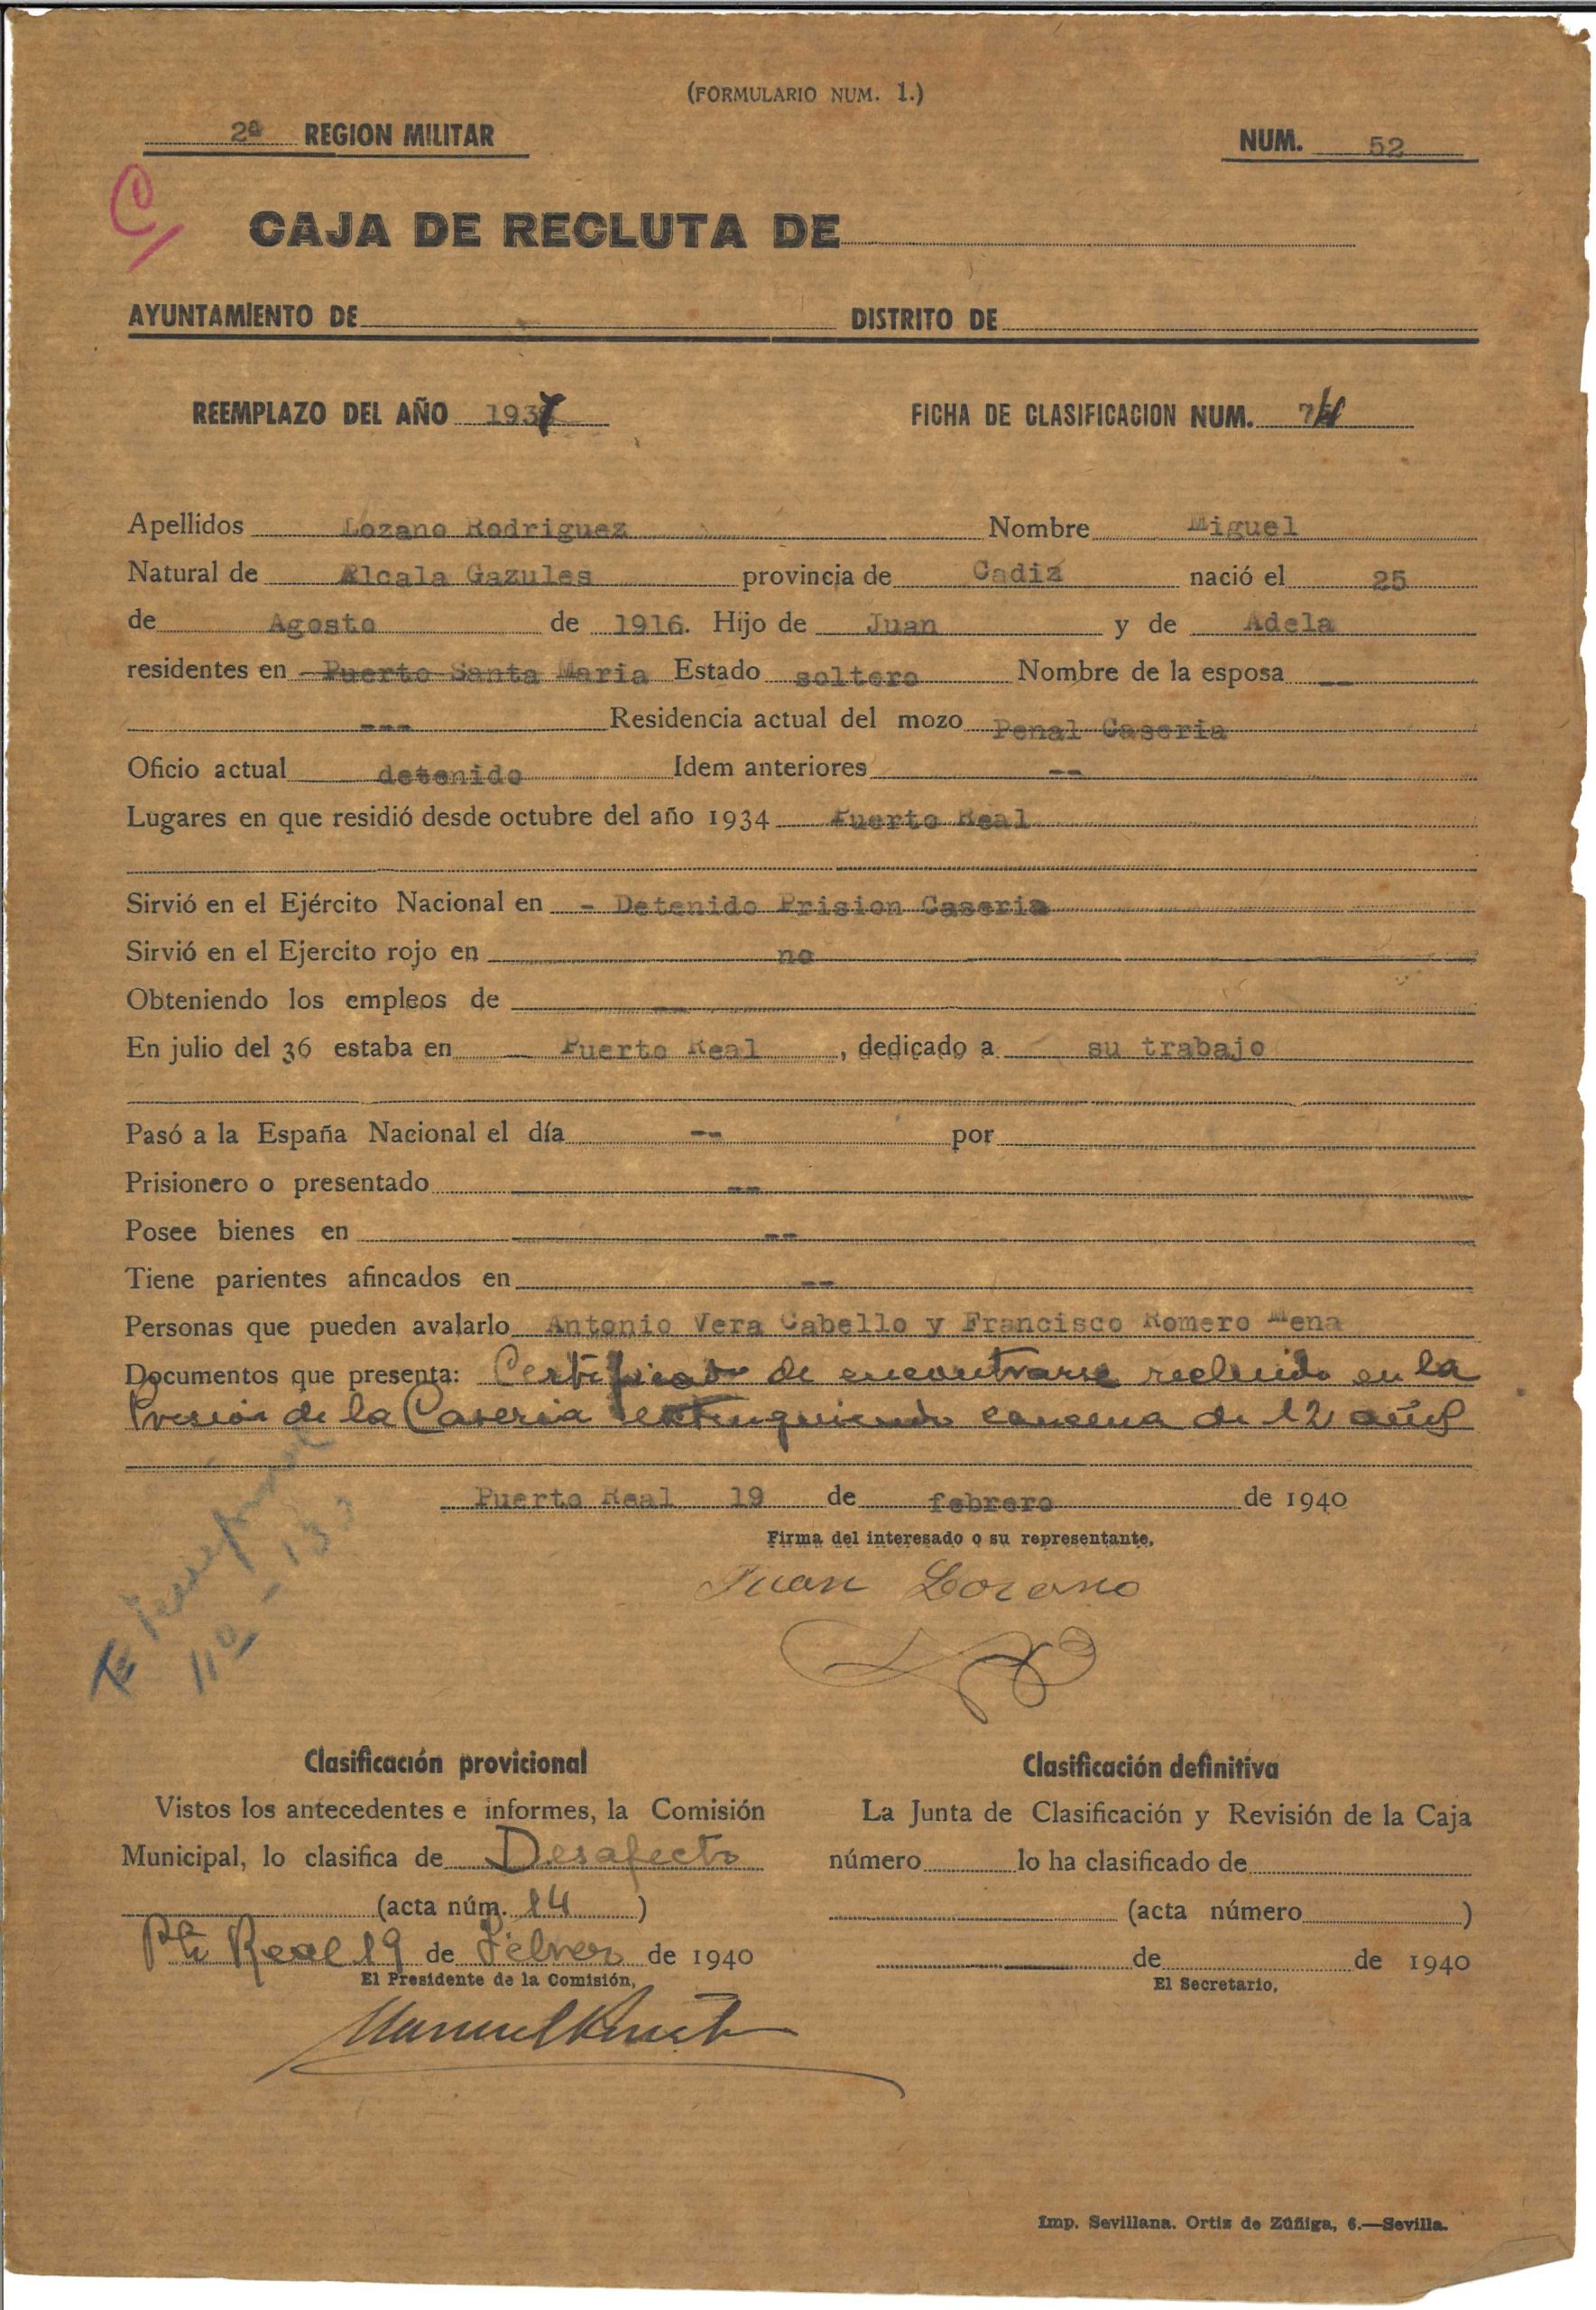 (FORMULARIO NUM. 1.)
2ª REGION MILITAR
NUM. 52
C
CAJA DE RECLUTA DE
AYUNTAMIENTO DE DISTRITO DE
REEMPLAZO DEL AÑO 1937 FICHA DE CLASIFICACION NUM.
Apellidos Lozano Rodriguez Nombre Miguel
Natural de Alcala Gazules provincia de Cadiz nació el 25
de Agosto de 1916. Hijo de Juan y de Adela
residentes en Puerto Santa Maria Estado soltero Nombre de la esposa --
--- Residencia actual del mozo Penal Caseria
Oficio actual detenido Idem anteriores --
Lugares en que residió desde octubre del año 1934 Puerto Real
Sirvió en el Ejército Nacional en - Detenido Prision Caseria
Sirvió en el Ejercito rojo en no
Obteniendo los empleos de --
En julio del 36 estaba en Puerto Real, dedicado a su trabajo
Pasó a la España Nacional el día -- por
Prisionero o presentado --
Posee bienes en --
Tiene parientes afincados en --
Personas que pueden avalarlo Antonio Vera Cabello y Francisco Romero Mena
Documentos que presenta: Certificado de encontrarse recluido en la
Prision de la Caseria extinguiendo condena de 12 años
Puerto Real 19 de febrero de 1940
Firma del interesado o su representante,
Juan Lozano
Clasificación provicional
Vistos los antecedentes e informes, la Comisión
Municipal, lo clasifica de Desafecto
(acta núm. 14)
Pto Real 19 de Febrero de 1940
El Presidente de la Comisión,
Clasificación definitiva
La Junta de Clasificación y Revisión de la Caja
número lo ha clasificado de
(acta número )
de de 1940
El Secretario,
Imp. Sevillana. Ortiz de Zúñiga, 6.—Sevilla.